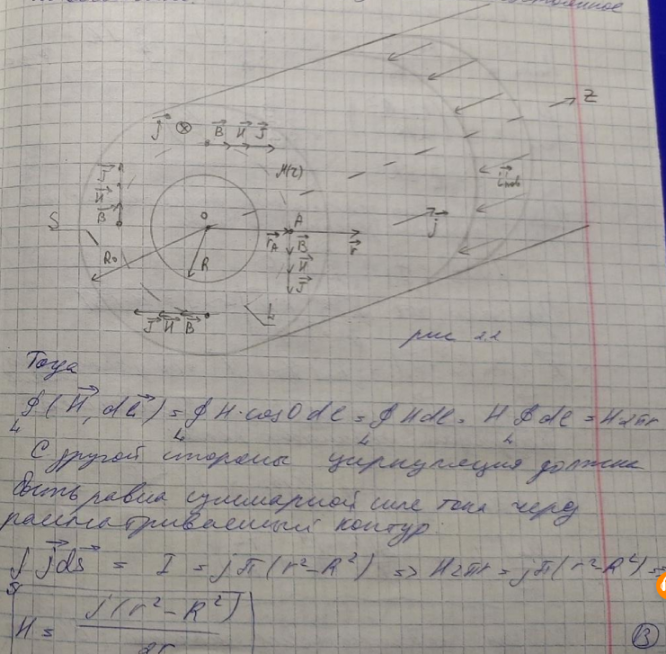 j ⊗ B H J
z
μ(r)
J
H
B
S
O
A
r_A
B
r
j
R₀
R
H
J
J H B
L
рис 2.2
Тогда
∮_L (H, dl) = ∮_L H·cos0 dl = ∮_L H dl = H ∮_L dl = H2πr
С другой стороны циркуляция должна
быть равна суммарной силе тока через
рассматриваемый контур:
∫_S j ds = I = jπ(r²-R²) => H2πr = jπ(r²-R²) =>
H = j(r²-R²)
2r
B